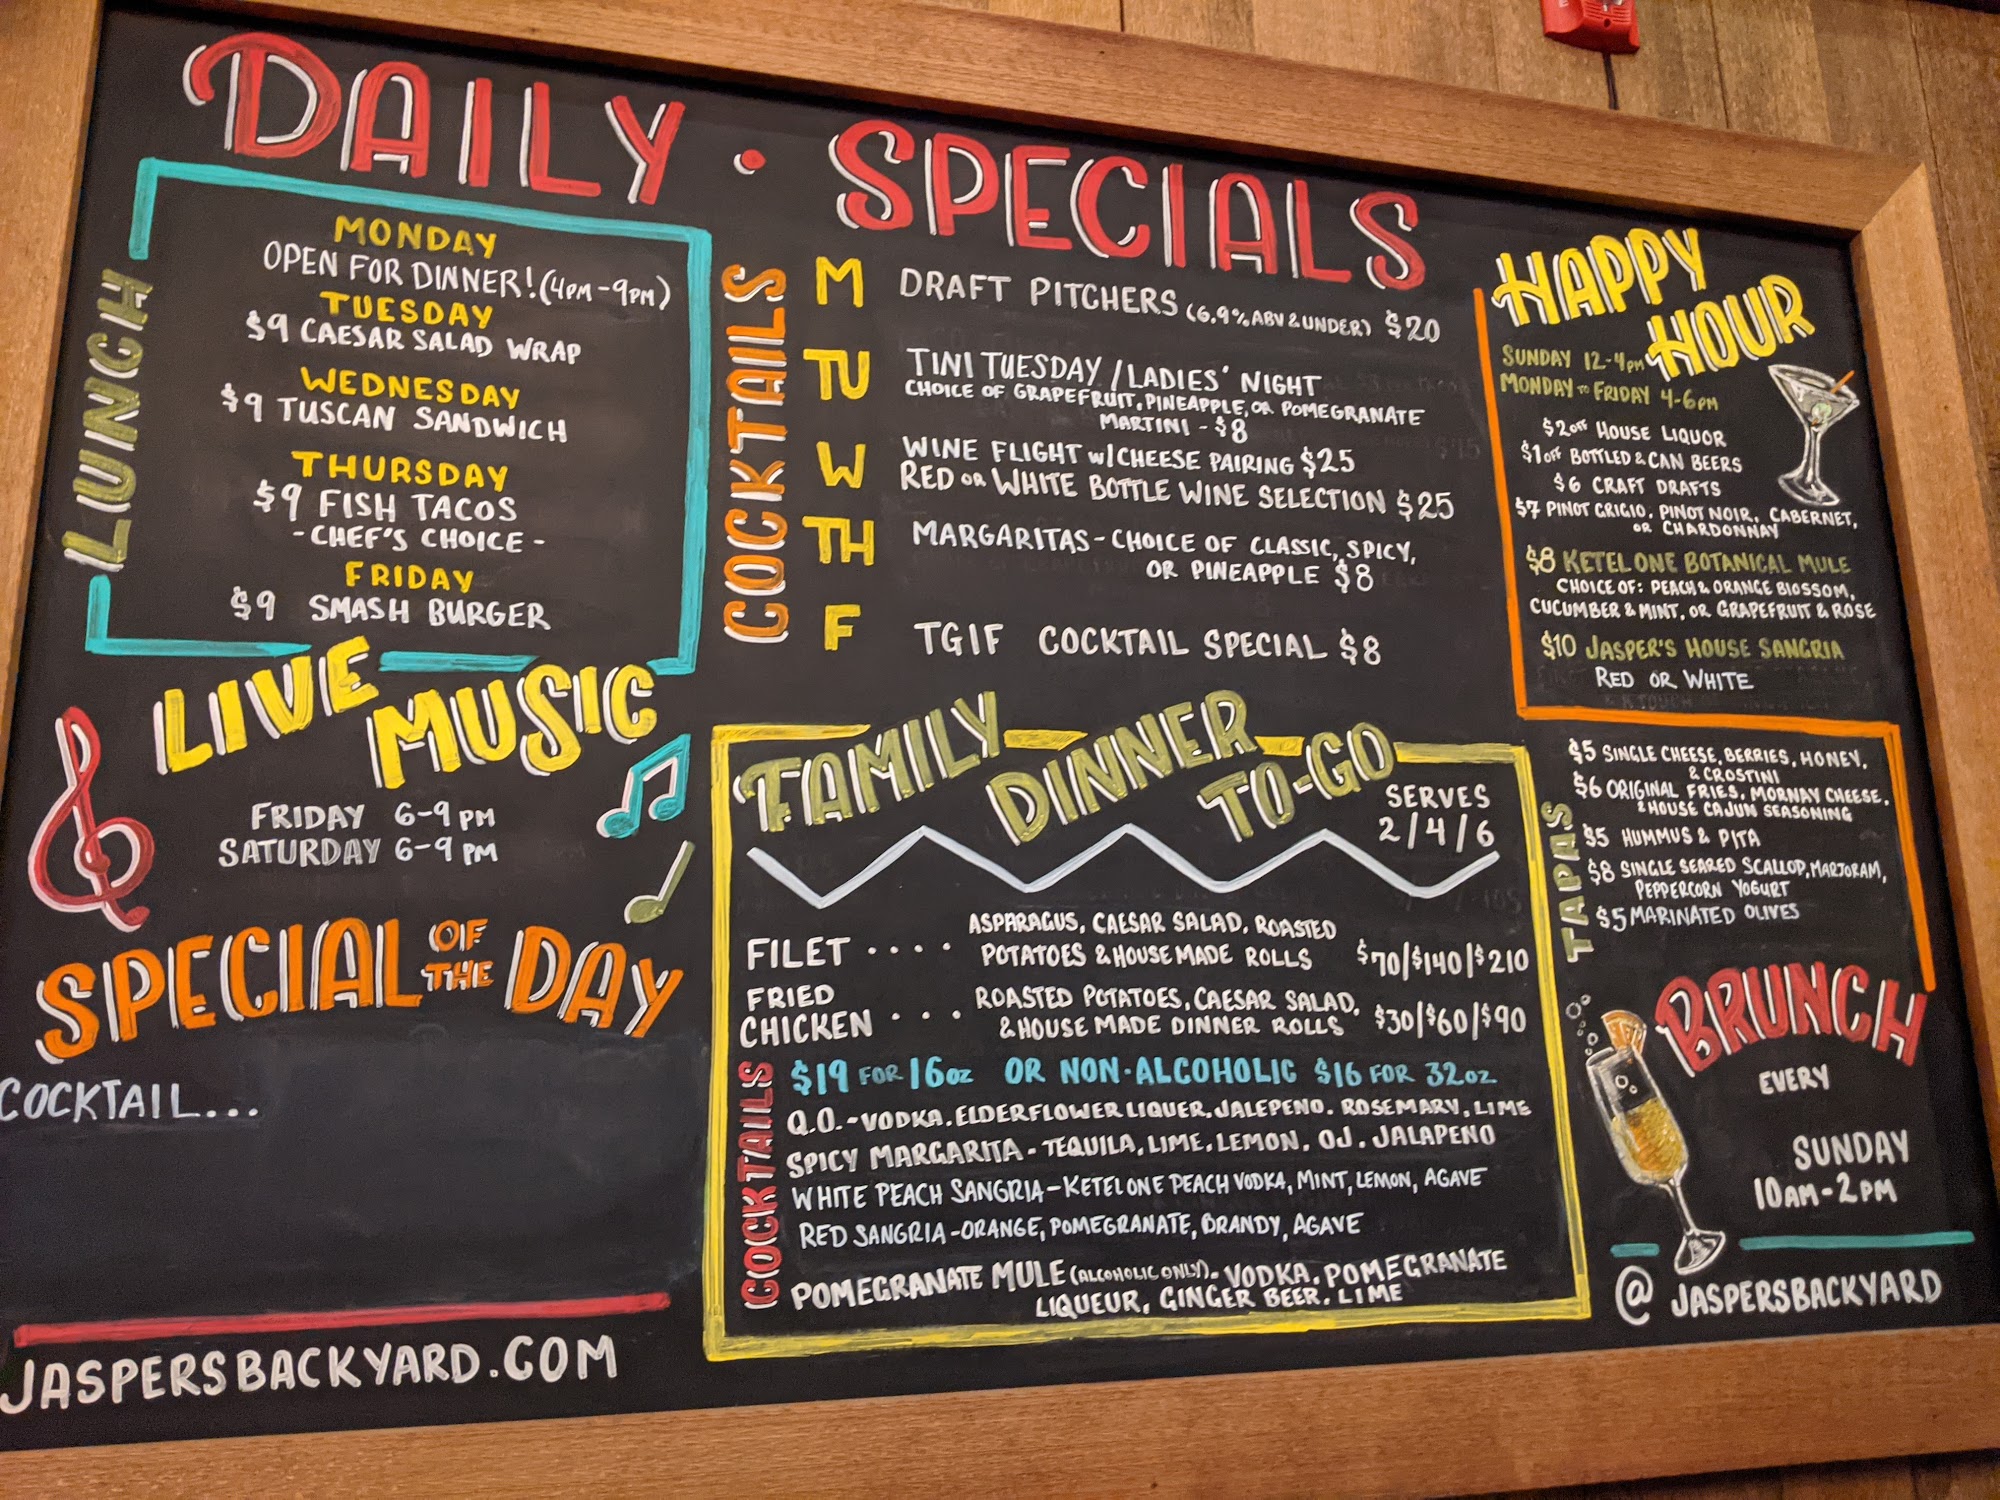 DAILY • SPECIALS
LUNCH
MONDAY
OPEN FOR DINNER! (4PM-9PM)
TUESDAY
$9 CAESAR SALAD WRAP
WEDNESDAY
$9 TUSCAN SANDWICH
THURSDAY
$9 FISH TACOS
- CHEF'S CHOICE -
FRIDAY
$9 SMASH BURGER
LIVE MUSIC
FRIDAY 6-9 PM
SATURDAY 6-9 PM
SPECIAL OF THE DAY
COCKTAIL...
JASPERSBACKYARD.COM
COCKTAILS
M DRAFT PITCHERS (6.9% ABV & UNDER) $20
TU TINI TUESDAY / LADIES' NIGHT
CHOICE OF GRAPEFRUIT, PINEAPPLE, OR POMEGRANATE
MARTINI - $8
W WINE FLIGHT W/ CHEESE PAIRING $25
RED OR WHITE BOTTLE WINE SELECTION $25
TH MARGARITAS - CHOICE OF CLASSIC, SPICY,
OR PINEAPPLE $8
F TGIF COCKTAIL SPECIAL $8
FAMILY DINNER TO-GO
SERVES
2/4/6
FILET .... ASPARAGUS, CAESAR SALAD, ROASTED
POTATOES & HOUSE MADE ROLLS $70/$140/$210
FRIED CHICKEN ... ROASTED POTATOES, CAESAR SALAD,
& HOUSE MADE DINNER ROLLS $30/$60/$90
COCKTAILS
$19 FOR 16OZ OR NON-ALCOHOLIC $16 FOR 32OZ
Q.O. - VODKA, ELDERFLOWER LIQUER, JALEPENO, ROSEMARY, LIME
SPICY MARGARITA - TEQUILA, LIME, LEMON, OJ, JALAPENO
WHITE PEACH SANGRIA - KETEL ONE PEACH VODKA, MINT, LEMON, AGAVE
RED SANGRIA - ORANGE, POMEGRANATE, BRANDY, AGAVE
POMEGRANATE MULE (ALCOHOLIC ONLY) - VODKA, POMEGRANATE
LIQUEUR, GINGER BEER, LIME
HAPPY HOUR
SUNDAY 12-4PM
MONDAY TO FRIDAY 4-6PM
$2 OFF HOUSE LIQUOR
$1 OFF BOTTLED & CAN BEERS
$6 CRAFT DRAFTS
$7 PINOT GRIGIO, PINOT NOIR, CABERNET,
OR CHARDONNAY
$8 KETEL ONE BOTANICAL MULE
CHOICE OF: PEACH & ORANGE BLOSSOM,
CUCUMBER & MINT, OR GRAPEFRUIT & ROSE
$10 JASPER'S HOUSE SANGRIA
RED OR WHITE
TAPAS
$5 SINGLE CHEESE, BERRIES, HONEY,
& CROSTINI
$6 ORIGINAL FRIES, MORNAY CHEESE,
& HOUSE CAJUN SEASONING
$5 HUMMUS & PITA
$8 SINGLE SEARED SCALLOP, MARJORAM,
PEPPERCORN YOGURT
$5 MARINATED OLIVES
BRUNCH
EVERY
SUNDAY
10AM-2PM
@JASPERSBACKYARD